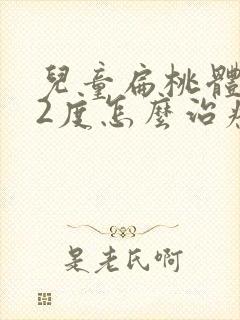 兒童扁桃體
2度怎麼治療
是老氏啊